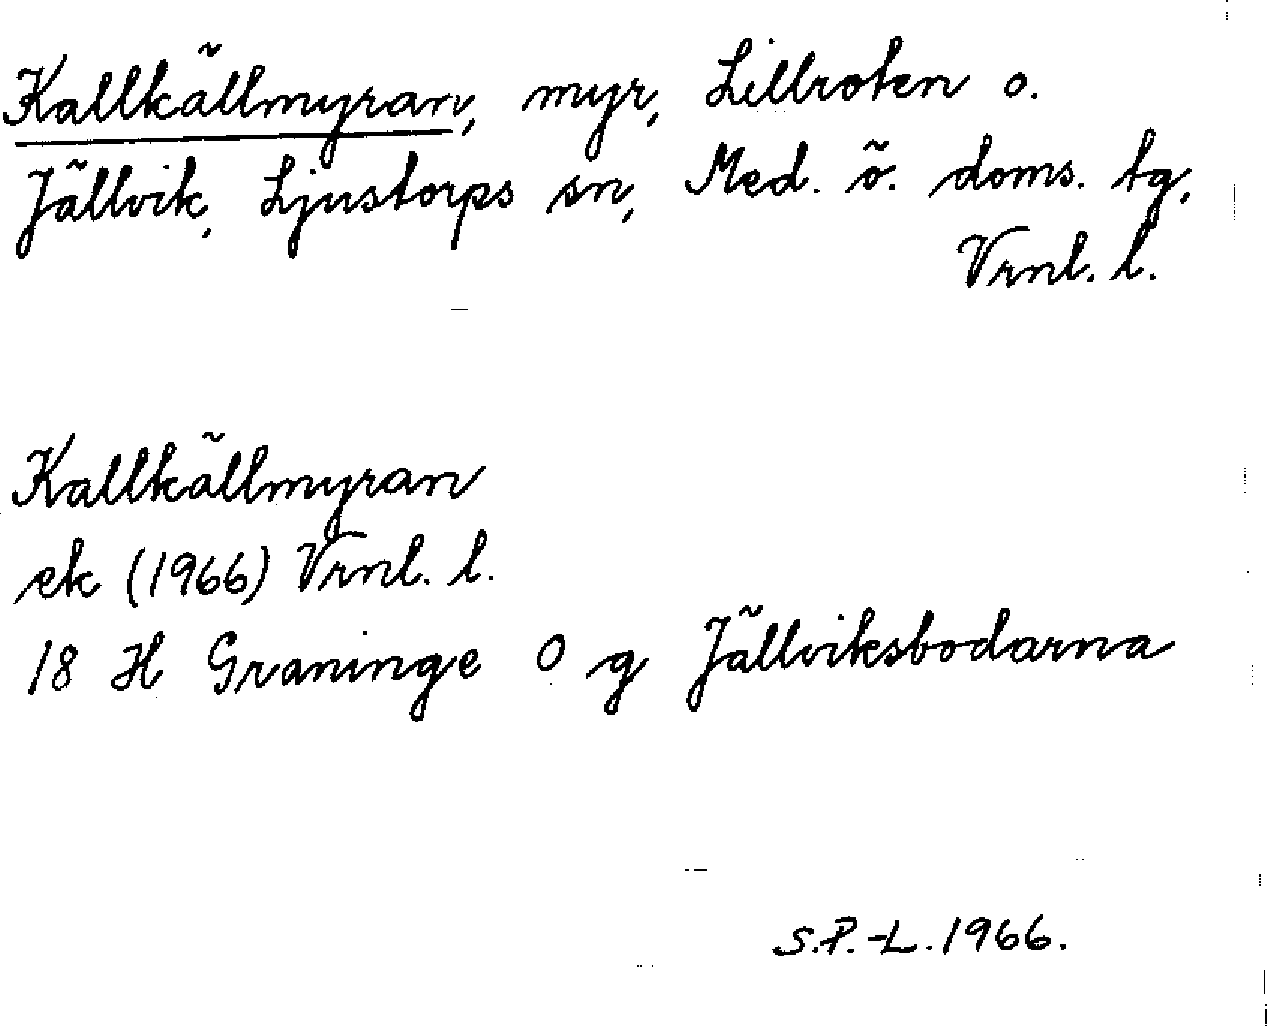 Kallkällmyran, myr, Lillroten o.
Jällvik, Ljustorps sn, Med. ö. doms. tg,
Vrnl. l.
Kallkällmyran
ek (1966) Vrnl. l.
18 H Graninge 0 g Jällviksbodarna
S.P.-L. 1966.